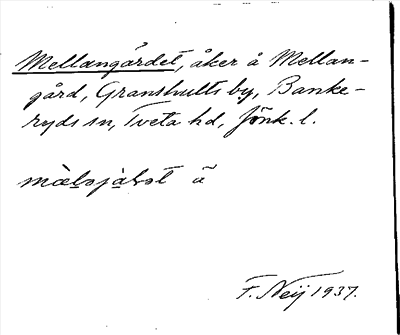 Mellangärdet, åker å Mellan-
gård, Granshults by, Banke-
ryds sn, Tveta hd, Jönk. l.
F. Neij 1937.